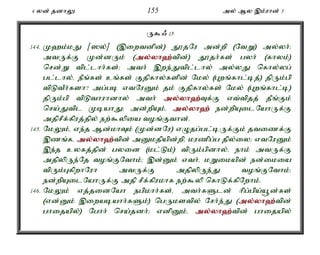 4 லன் தனாலு 155 அல் ஆல இம்ரான் 3
ருகூஃ 15
144. முஹம்மது [ஸல்] (இறைவனின்) தூதரே அன்றி (வேறு) அல்லர்;
அவருக்கு முன்னரும் (அல்லாஹ்வின்) தூதர்கள் பலர் (காலம்)
சென்று விட்டார்கள்; அவர் இறந்துவிட்டால் அல்லது கொல்லப்
பட்டால், நீங்கள் உங்கள் குதிகால்களின் மேல் (புறங்காட்டித்) திரும்பி
விடுவீர்களா? அப்படி எவரேனும் தம் குதிகால்கள் மேல் (புறங்காட்டி)
திரும்பி விடுவாரானால் அவர் அல்லாஹ்வுக்கு எவ்விதத் தீங்கும்
செய்துவிட முடியாது; அன்றியும், அல்லாஹ் நன்றியுடையோருக்கு
அதிசீக்கிரத்தில் நற்கூலியை வழங்குவான்.
145. மேலும், எந்த ஆன்மாவும் (முன்னரே) எழுதப்பட்டிருக்கும் தவணைக்கு
இணங்க, அல்லாஹ்வின் அனுமதியின்றி மரணிப்பதில்லை; எவரேனும்
இந்த உலகத்தின் பலனை (மட்டும்) விரும்பினால், நாம் அவருக்கு
அதிலிருந்தே வழங்குவோம்; இன்னும் எவர், மறுமையின் நன்மையை
விரும்புகிறாரோ அவருக்கு அதிலிருந்து வழங்குவோம்;
நன்றியுடையோருக்கு அதி சீக்கிரமாக நற்கூலி கொடுக்கிறோம்.
146. மேலும் எத்தனையோ நபிமார்கள், அவர்களுடன் ரிப்பிய்யூன்கள்
(என்னும் இறையடியார்களும்) பெருமளவில் சேர்ந்து (அல்லாஹ்வின்
பாதையில்) போர் செய்தனர்; எனினும், அல்லாஹ்வின் பாதையில்